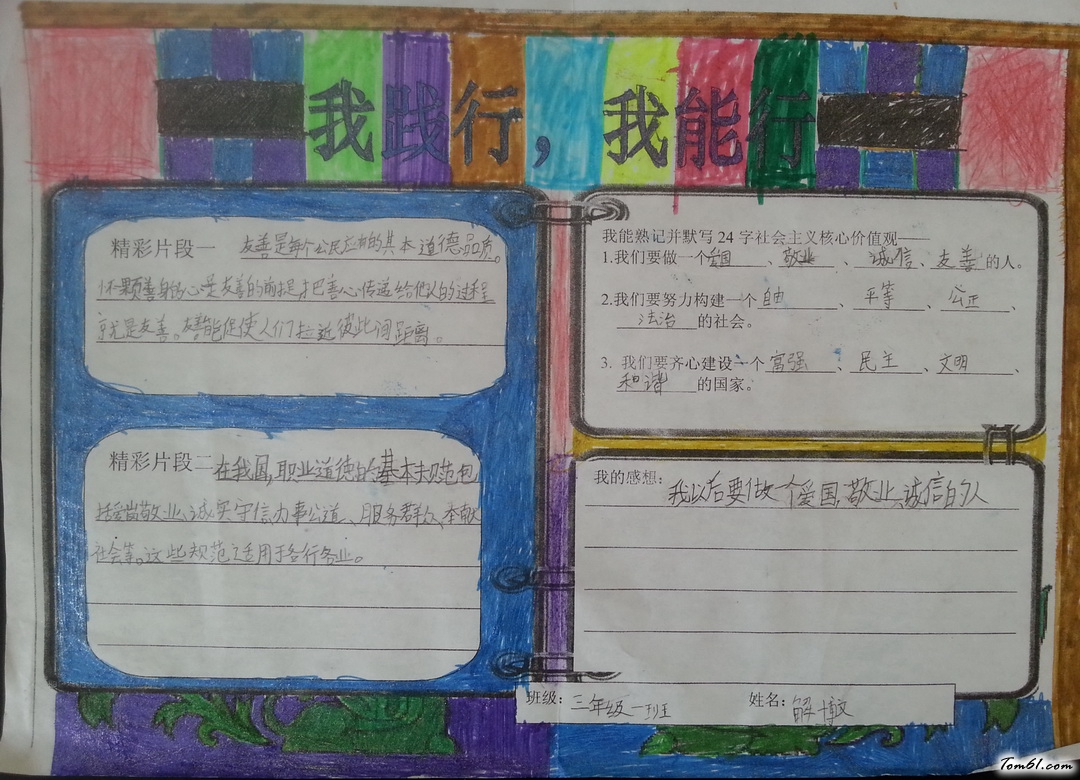 我践行，我能行
精彩片段一 友善是每个公民应有的基本道德品质。
怀一颗善良的心是友善的前提，把善心传送给他人的过程
就是友善。友善能促使人们拉近彼此间距离。
精彩片段二 在我国，职业道德的基本规范包
括爱岗敬业、诚实守信、办事公道、服务群众、奉献
社会等。这些规范适用于各行各业。
我能熟记并默写24字社会主义核心价值观——
1.我们要做一个爱国、敬业、诚信、友善的人。
2.我们要努力构建一个自由、平等、公正、
法治的社会。
3. 我们要齐心建设一个富强、民主、文明、
和谐的国家。
我的感想：我以后要做一个爱国、敬业、诚信的人
班级：三年级一班 姓名：解博
Tom61.com